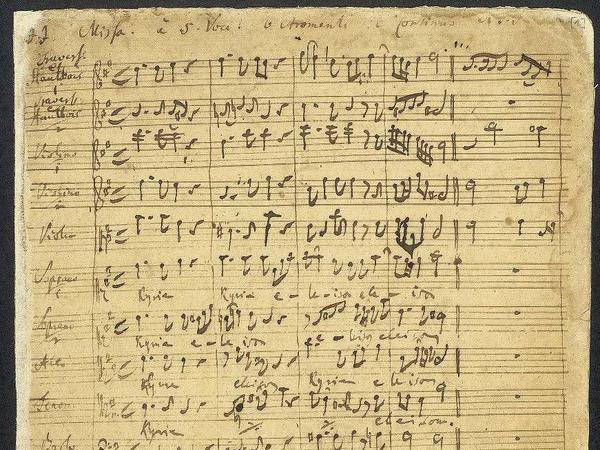 J.J. Missa. à 5 Voci. 6 Stromenti e Continuo
Hautbois
1
Hautbois
2
Violino
1
Violino
2
Viola
Soprano
1
Kyrie Kyrie e - le - ison ele - ison
Soprano
2
Kyrie e - le - ison e - le - ison eleison
Alto
Kyrie eleison Kyrie e le ison
Tenore
Kyrie eleison.